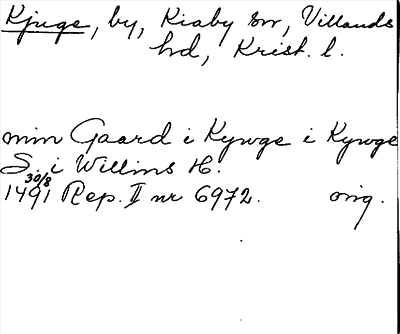 Kjuge, by, Kiaby sn, Villands
hd, Krist. l.
min Gaard i Kywge i Kywge
S. i Willins H.
30/8
1491 Rep. II nr 6972. orig.